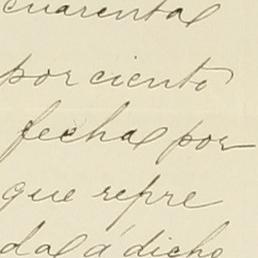 cuarenta
por ciento
fecha por
que repre
da á dicho